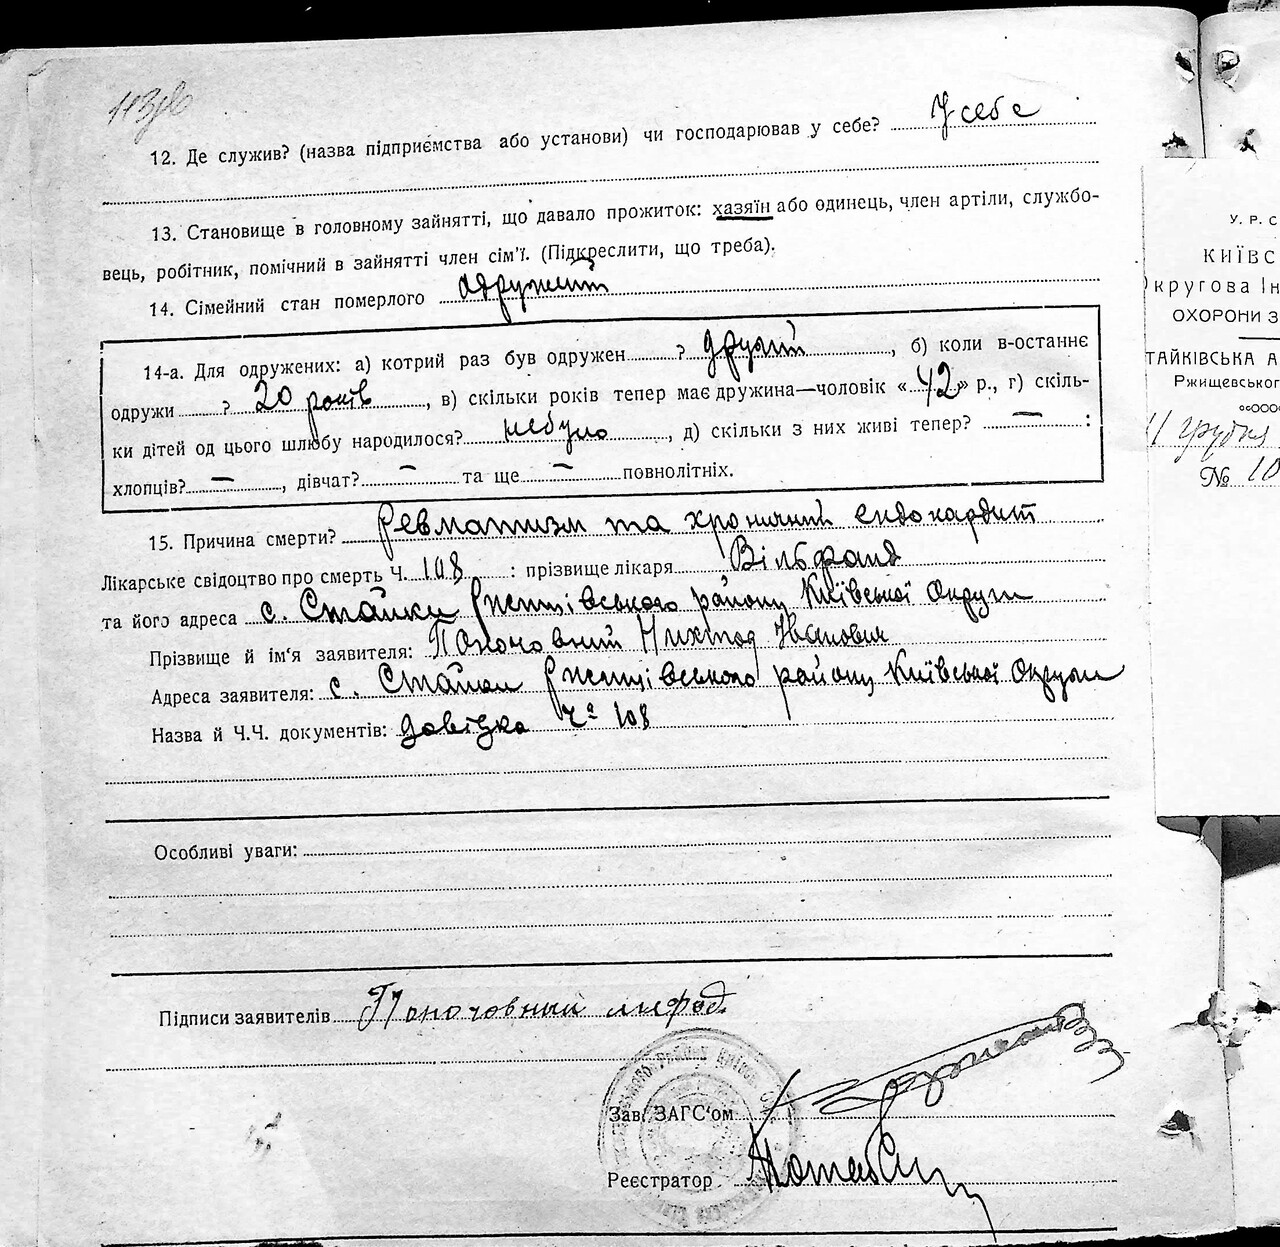 113зв
12. Де служив? (назва підприємства або установи) чи господарював у себе? У себе
13. Становище в головному зайнятті, що давало прожиток: хазяїн або одинець, член артіли, службо-
вець, робітник, помічний в зайнятті член сім'ї. (Підкреслити, що треба).
14. Сімейний стан померлого одружений
14-а. Для одружених: а) котрий раз був одружен ? другий, б) коли в-останнє
одружи ? 20 років, в) скільки років тепер має дружина—чоловік « 42 » р., г) скіль-
ки дітей од цього шлюбу народилося? небуло, д) скільки з них живі тепер? — :
хлопців? —, дівчат? — та ще — повнолітніх.
15. Причина смерти? Ревматизм та хроничний ендокардит
Лікарське свідоцтво про смерть Ч. 108 : прізвище лікаря Вільфанд
та його адреса с. Стайки Ржищівського району Київської Округи
Прізвище й ім'я заявителя: Поночовний Иванович
Адреса заявителя: с. Стайки Ржищівського району Київської Округи
Назва й Ч.Ч. документів: довідка Ч 108
Особливі уваги:
Підписи заявителів Поночовный
Зав. ЗАГС'ом
Реєстратор
У. Р. С
КИЇВС
кругова Ін
ОХОРОНИ З
ТАЙКІВСЬКА А
Ржищевського
11 грудня
№ 10